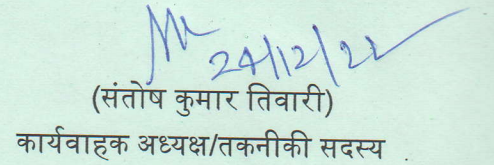 24/12/22
(संतोष कुमार तिवारी)
कार्यवाहक अध्यक्ष/तकनीकी सदस्य